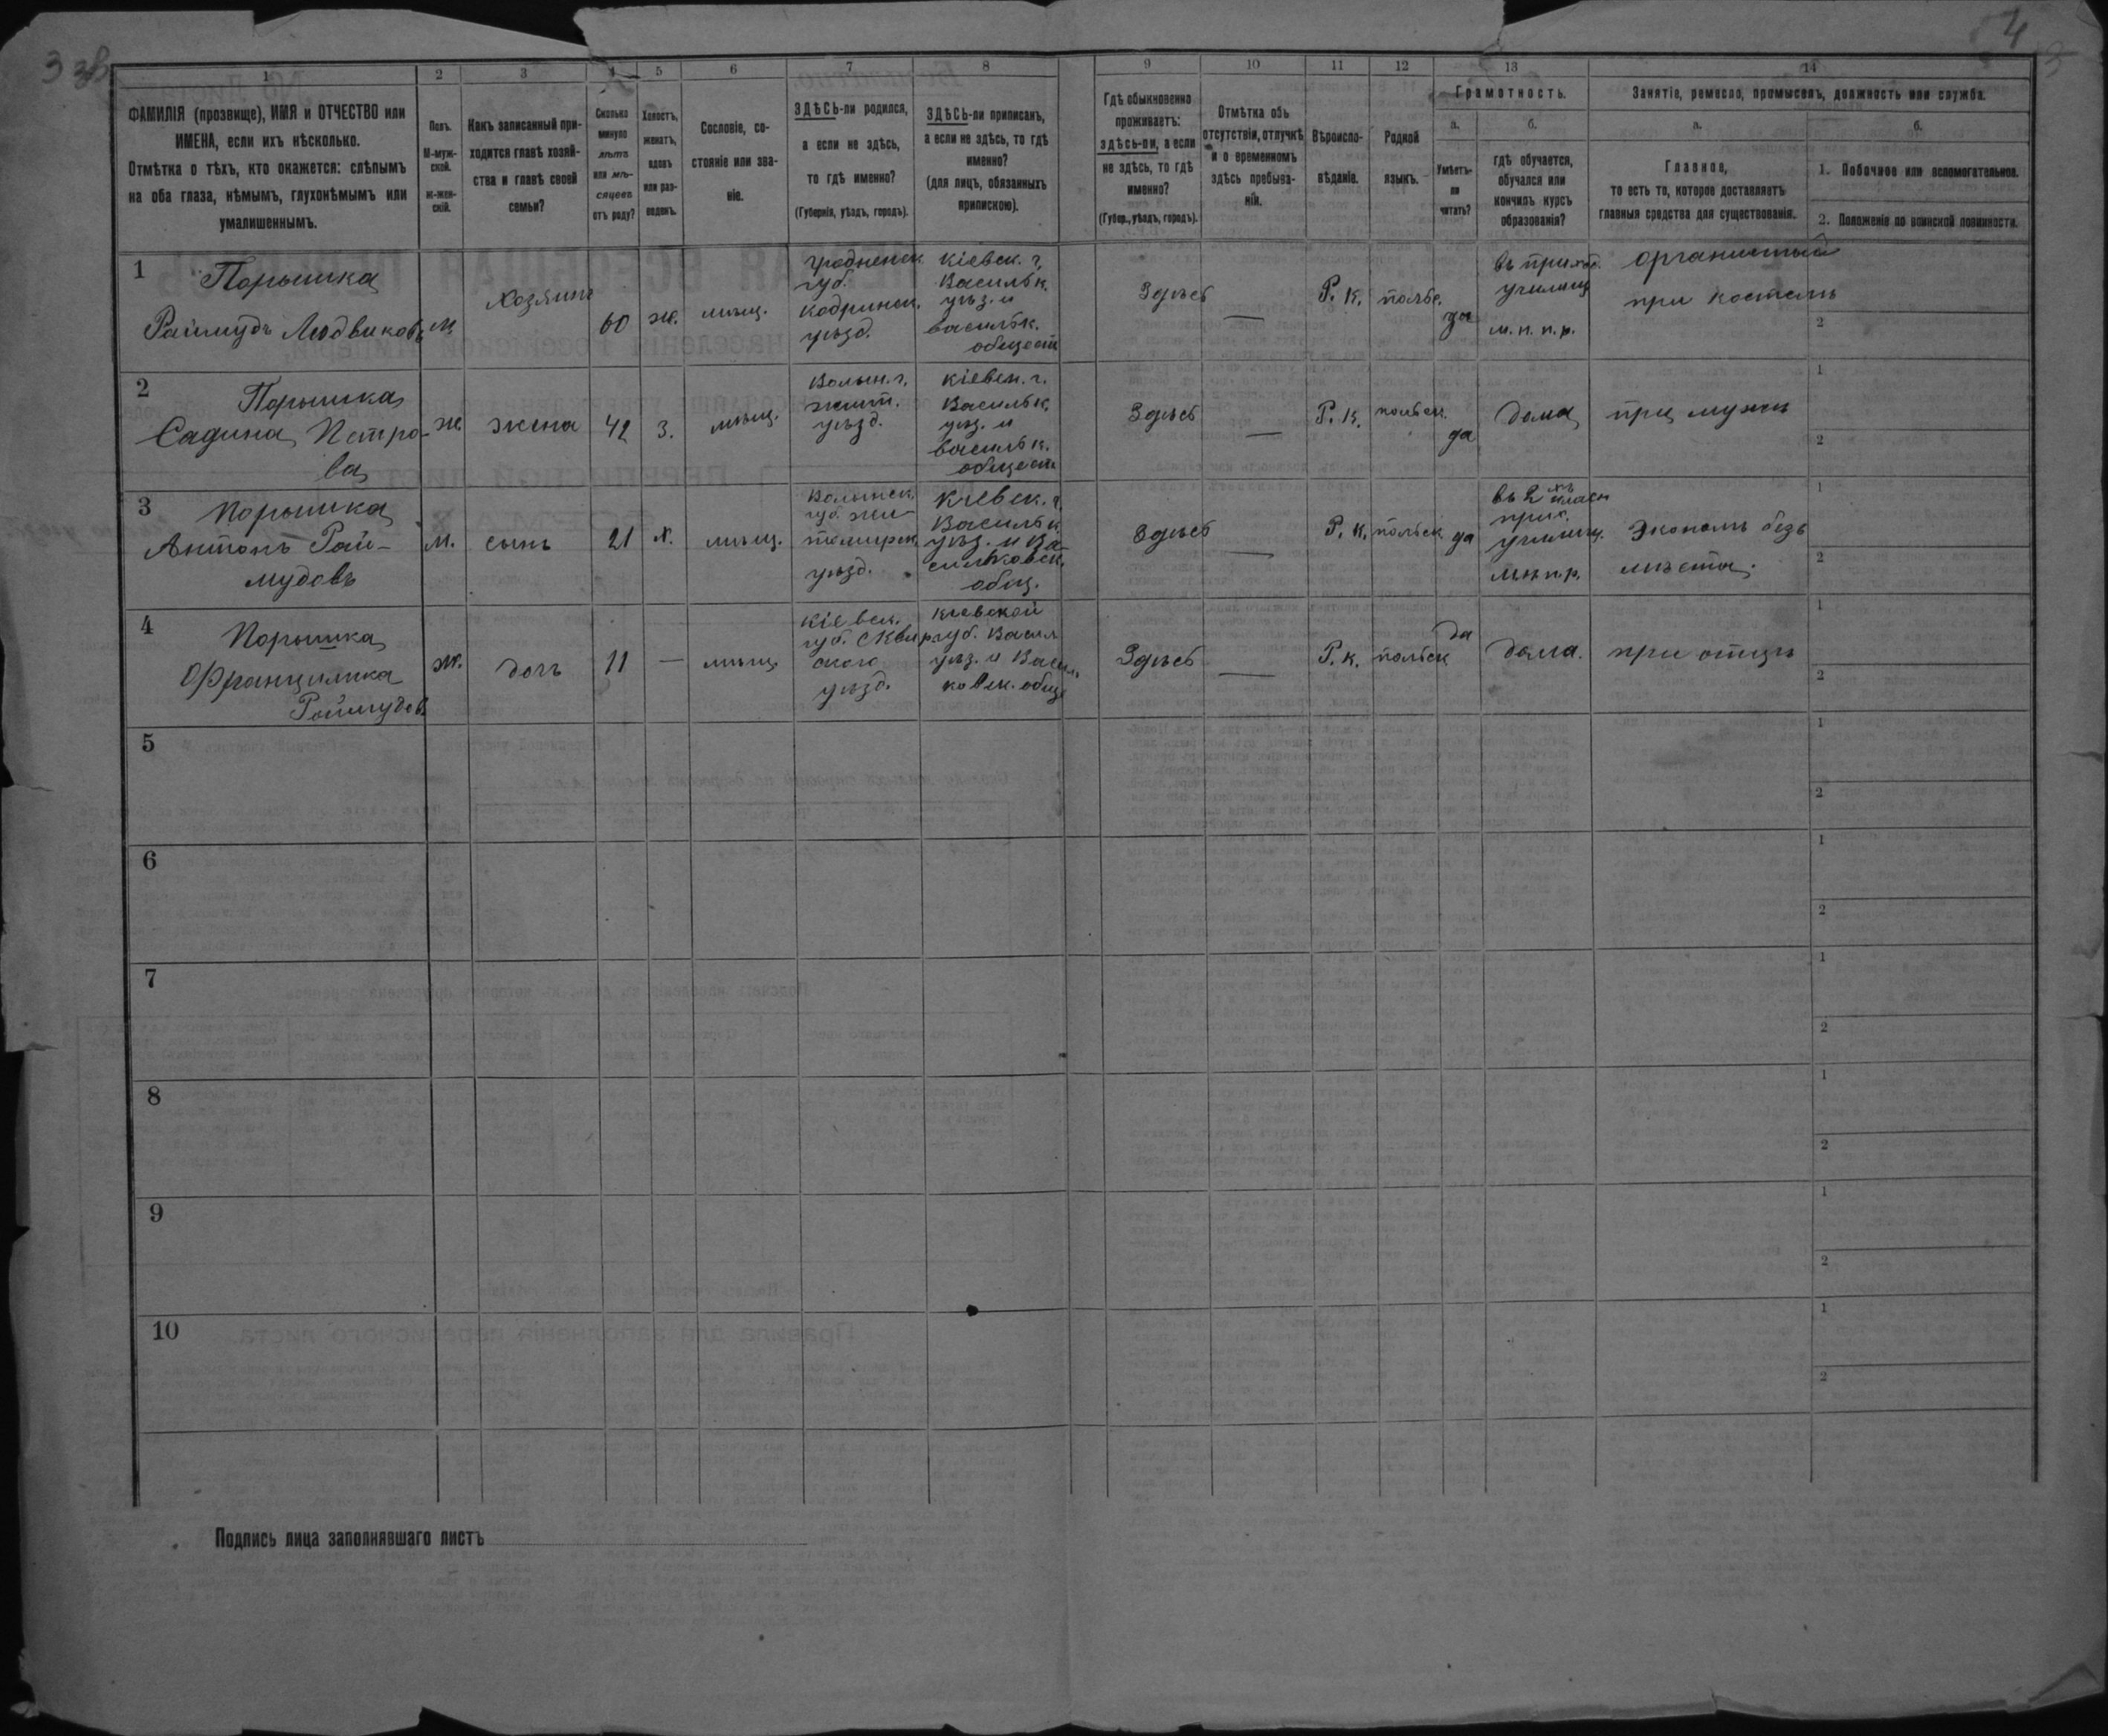 3 зв
4
3
1
2
3
4
5
6
7
8
9
10
11
12
13
14
ФАМИЛІЯ (прозвище), ИМЯ и ОТЧЕСТВО или
ИМЕНА, если ихъ нѣсколько.
Отмѣтка о тѣхъ, кто окажется: слѣпымъ
на оба глаза, нѣмымъ, глухонѣмымъ или
умалишеннымъ.
Полъ.
М-муж-
ской.
ж-жен-
скій.
Какъ записанный при-
ходится главѣ хозяй-
ства и главѣ своей
семьи?
Сколько
минуло
лѣтъ
или мѣ-
сяцевъ
отъ роду?
Холостъ,
женатъ,
вдовъ
или раз-
веденъ.
Сословіе, со-
стояніе или зва-
ніе.
ЗДѢСЬ-ли родился,
а если не здѣсь,
то гдѣ именно?
(Губернія, уѣздъ, городъ).
ЗДѢСЬ-ли приписанъ,
а если не здѣсь, то гдѣ
именно?
(для лицъ, обязанныхъ
припискою).
Гдѣ обыкновенно
проживаетъ:
здѣсь-ли, а если
не здѣсь, то гдѣ
именно?
(Губер., уѣздъ, городъ).
Отмѣтка объ
отсутствіи, отлучкѣ
и о временномъ
здѣсь пребыва-
ніи.
Вѣроиспо-
вѣданіе.
Родной
языкъ.
Грамотность.
а.
Умѣетъ-
ли
читать?
б.
гдѣ обучается,
обучался или
кончилъ курсъ
образованія?
Занятіе, ремесло, промыселъ, должность или служба.
а.
Главное,
то есть то, которое доставляетъ
главныя средства для существованія.
б.
1. Побочное или вспомогательное.
2. Положеніе по воинской повинности.
1
Порышка
Раймудъ Людвиковъ
м
хозяинъ
60
ж.
мѣщ.
Гродненск
губ.
Кобринск.
уѣзд.
Кіевск. г.
Васильк.
уѣз. и
васильк.
обществ
Здѣсь
—
Р. К.
польс.
да
въ приход.
училищ
м. н. п. р.
органистый
при костелѣ
2
2
Порышка
Садина Петро-
ва
ж
жена
42
З.
мѣщ.
Волын. г.
жит.
уѣзд.
Кіевск. г.
Васильк.
уѣз. и
васильк.
обществ
Здѣсь
—
Р. К.
польск.
да
дома
при мужѣ
1
2
3
Порышка
Антонъ Рай-
мудовъ
м.
сынъ
21
х.
мѣщ.
Волынск.
губ. жи-
томирск.
уѣзд.
Кіевск. г.
Васильк
уѣз. и Ва-
сильковск.
общ.
Здѣсь
—
Р. К.
польск.
да
въ 2 хъ класн
прих.
училищ.
м. н. п. р.
Экономъ безъ
мѣста.
1
2
4
Порышка
Францишка
Раймудов
ж.
дочъ
11
—
мѣщ.
Кіевск.
губ. Сквир
скаго
уѣзд.
Кіевской
губ. Васил
уѣз. и Васил.
ковск. общ
Здѣсь
—
Р. К.
польск
да
дома.
при отцѣ
1
2
5
1
2
6
1
2
7
1
2
8
1
2
9
1
2
10
1
2
Подпись лица заполнявшаго листъ